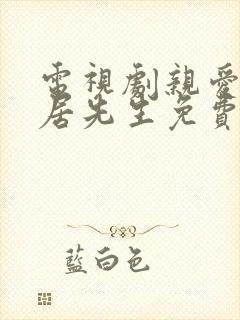 電視劇親愛
居先生免費
藍白色